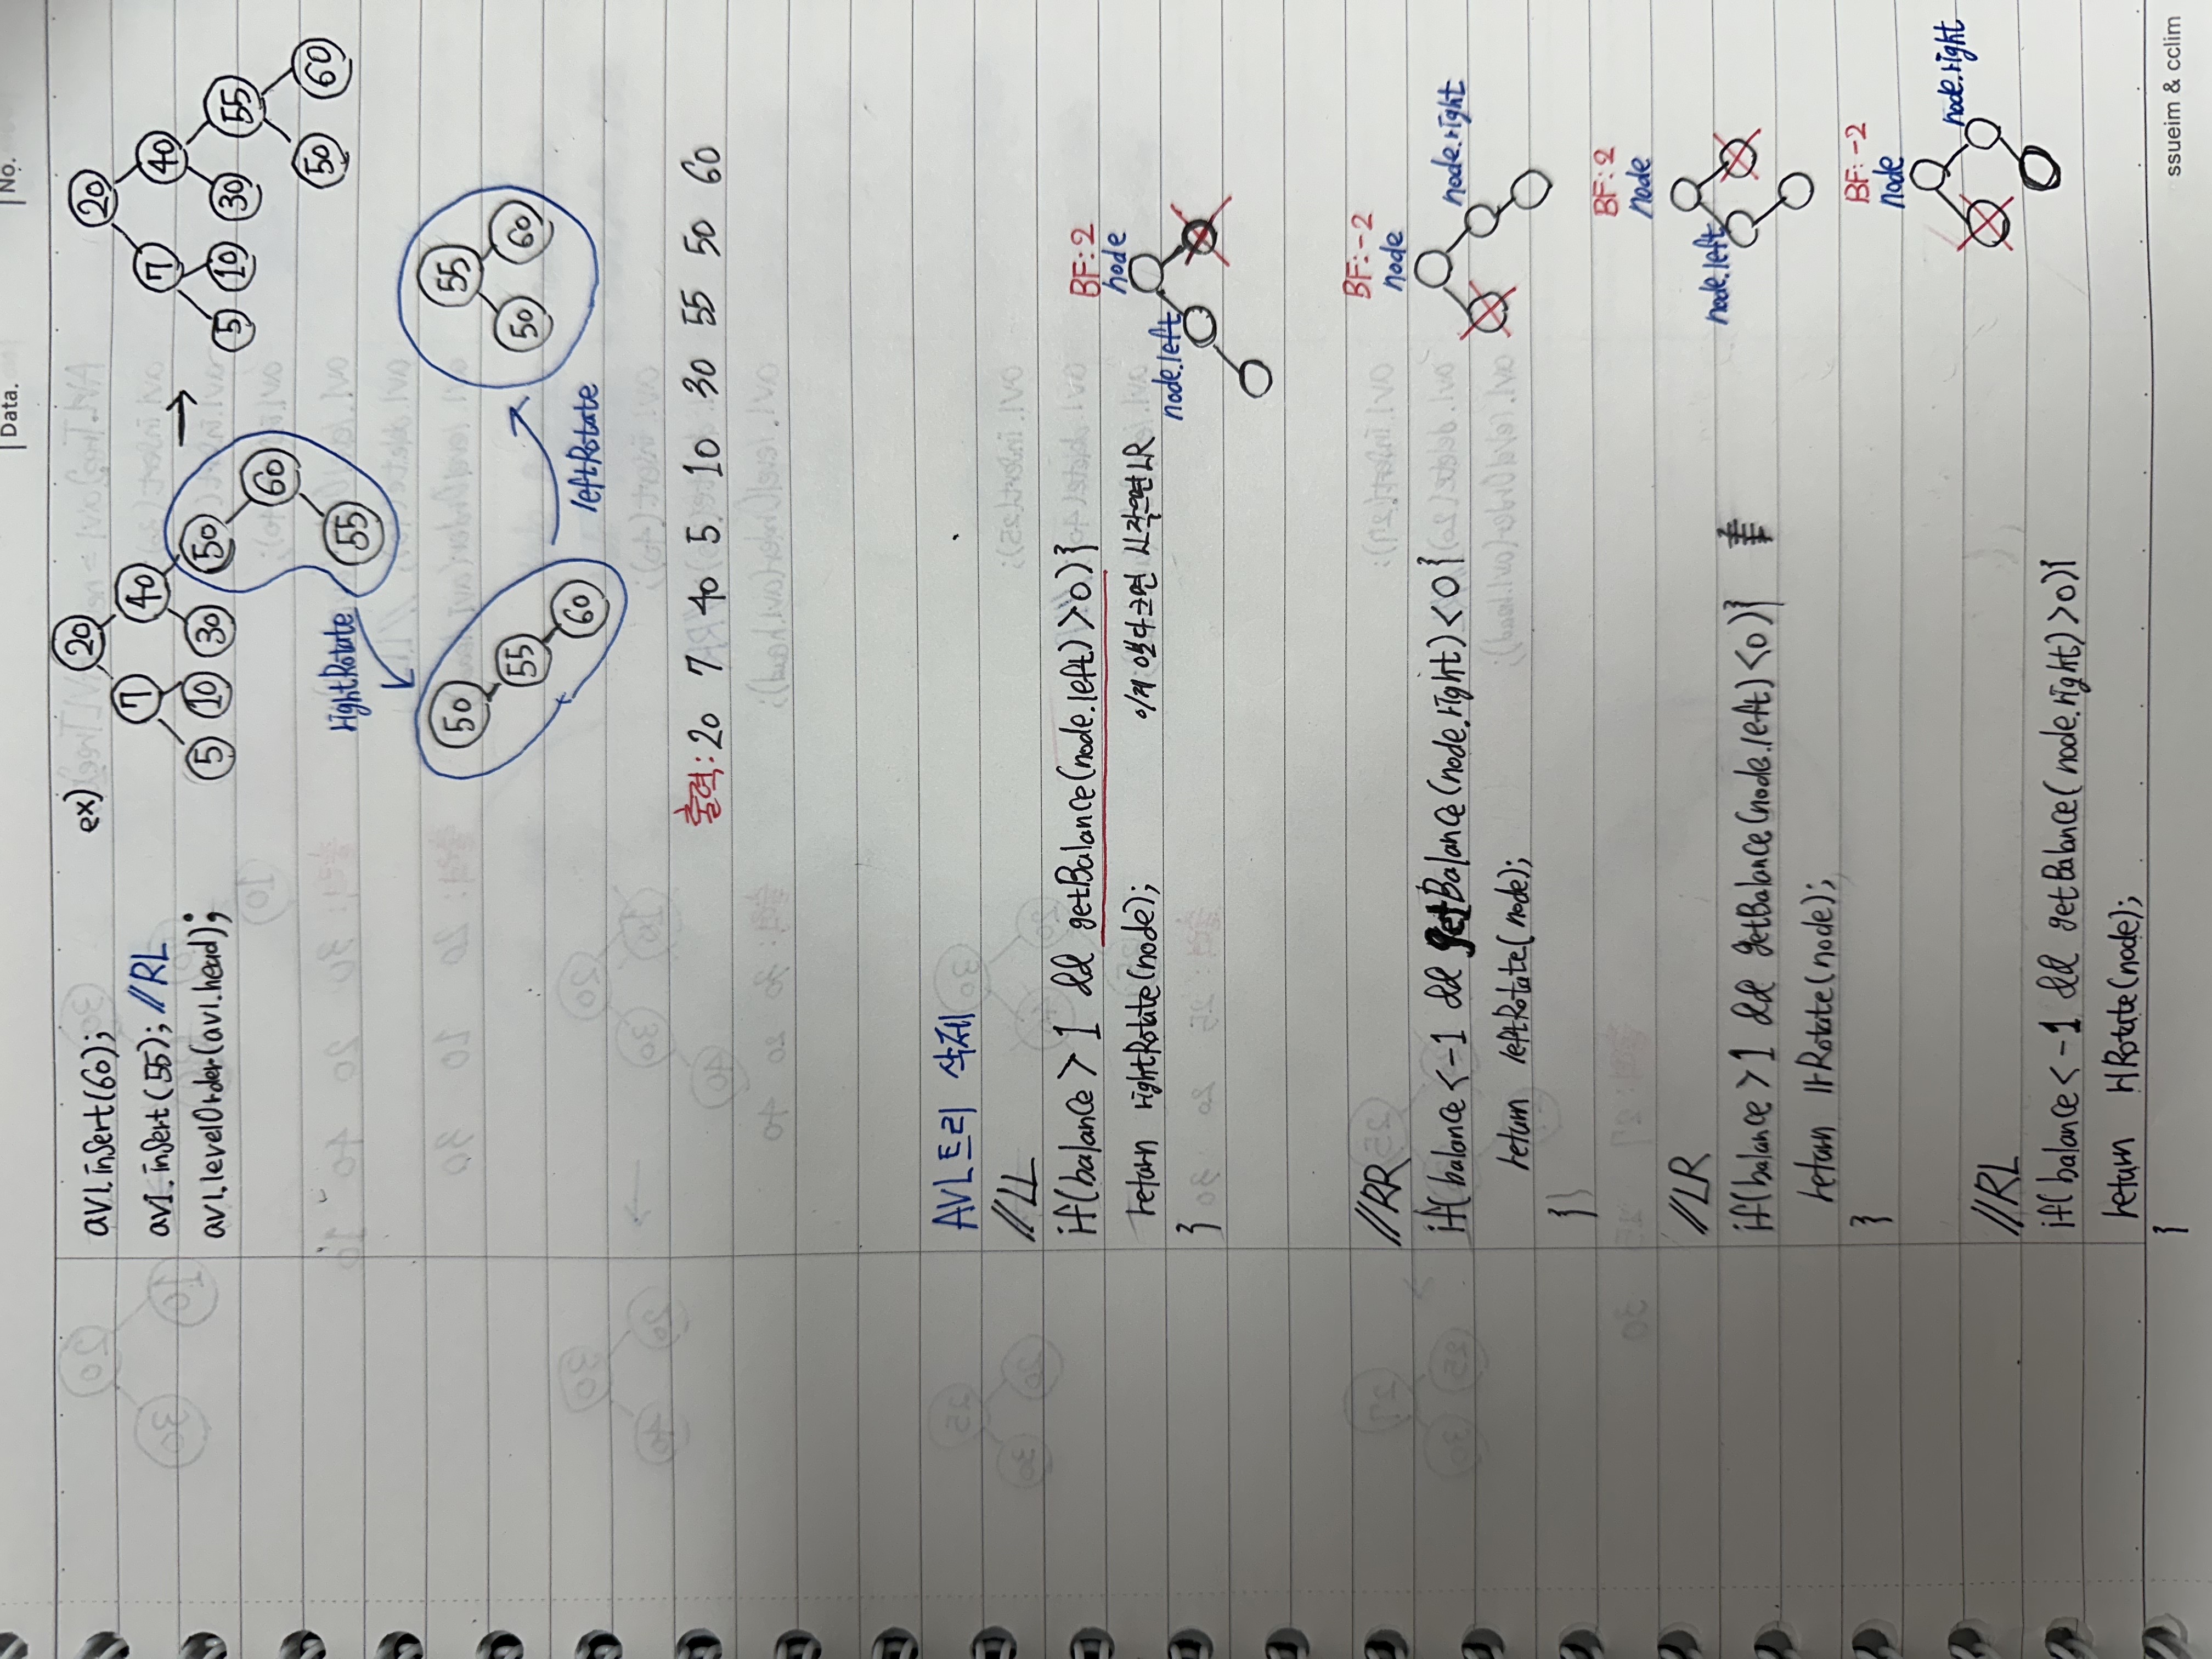 Data.
No.
avl.insert(60);
avl.insert(55); //RL
avl.levelOrder(avl.head);
ex)
20
7 40
5 10 30 50
60
55
20
7 40
5 10 30 55
50 60
rightRotate
50
55
60
leftRotate
55
50 60
출력: 20 7 40 5 10 30 55 50 60
AVL트리 삭제
//LL
if(balance > 1 && getBalance(node.left) > 0){
return rightRotate(node);
이게 0보다 크면 LL 작으면 LR
}
BF: 2
node
node.left
//RR
if(balance < -1 && getBalance(node.right) < 0{
return leftRotate(node);
}
BF: -2
node
node.right
//LR
if(balance > 1 && getBalance(node.left) < 0){
return lrRotate(node);
}
BF: 2
node
node.left
//RL
if(balance < -1 && getBalance(node.right) > 0){
return rlRotate(node);
}
BF: -2
node
node.right
ssueim & cclim